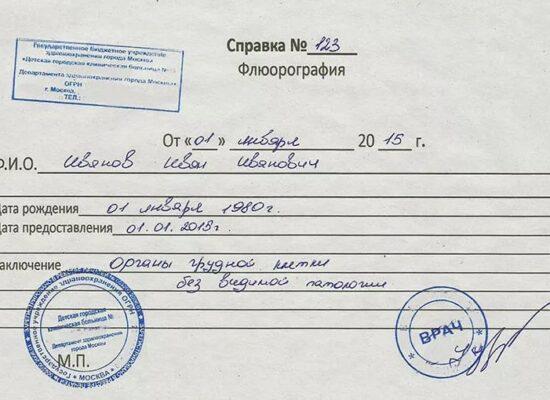 Государственное бюджетное учреждение
здравоохранения города Москвы
«Детская городская клиническая больница №
Департамента здравоохранения города Москвы»
ОГРН
г. Москва,
ТЕЛ.:
Справка № 123
Флюорография
От «01» января 2015 г.
Ф.И.О. Иванов Иван Иванович
Дата рождения 01 января 1980г.
Дата предоставления 01.01.2015г.
Заключение Органы грудной клетки
без видимой патологии
Государственное учреждение здравоохранения ОГРН
Детская городская
клиническая больница №
Департамент здравоохранения
города Москвы
* МОСКВА *
М.П.
ВРАЧ